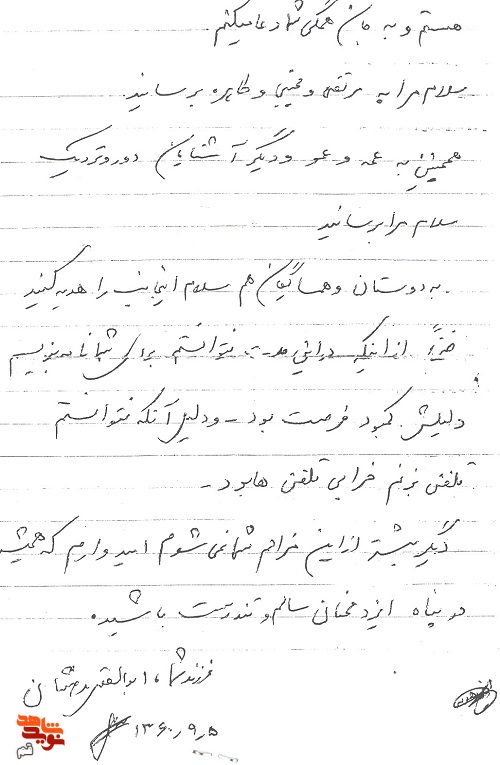 هستم و به جان همگی شما دعا میکنم.
سلام مرا به مرتضی و مجتبی و طاهره برسانید.
همچنین به عمه و عمو و دیگر آشنایان دور و نزدیک
سلام مرا برسانید
به دوستان و همسایگان هم سلام اینجانب را هدیه کنید
ضمناً از اینکه در این مدت نتوانستم برای شما نامه بنویسم
دلیلش کمبود فرصت بود - و دلیل آنکه نتوانستم
تلفن بزنم خرابی تلفن ها بود -
دیگر بیشتر از این مزاحم شما نمی شوم امیدوارم که همیشه
در پناه ایزد منان سالم و تندرست باشید.
فرزند شما، ابوالفضل
۱۳۶۰٫۹٫۵
شاهد
نوید